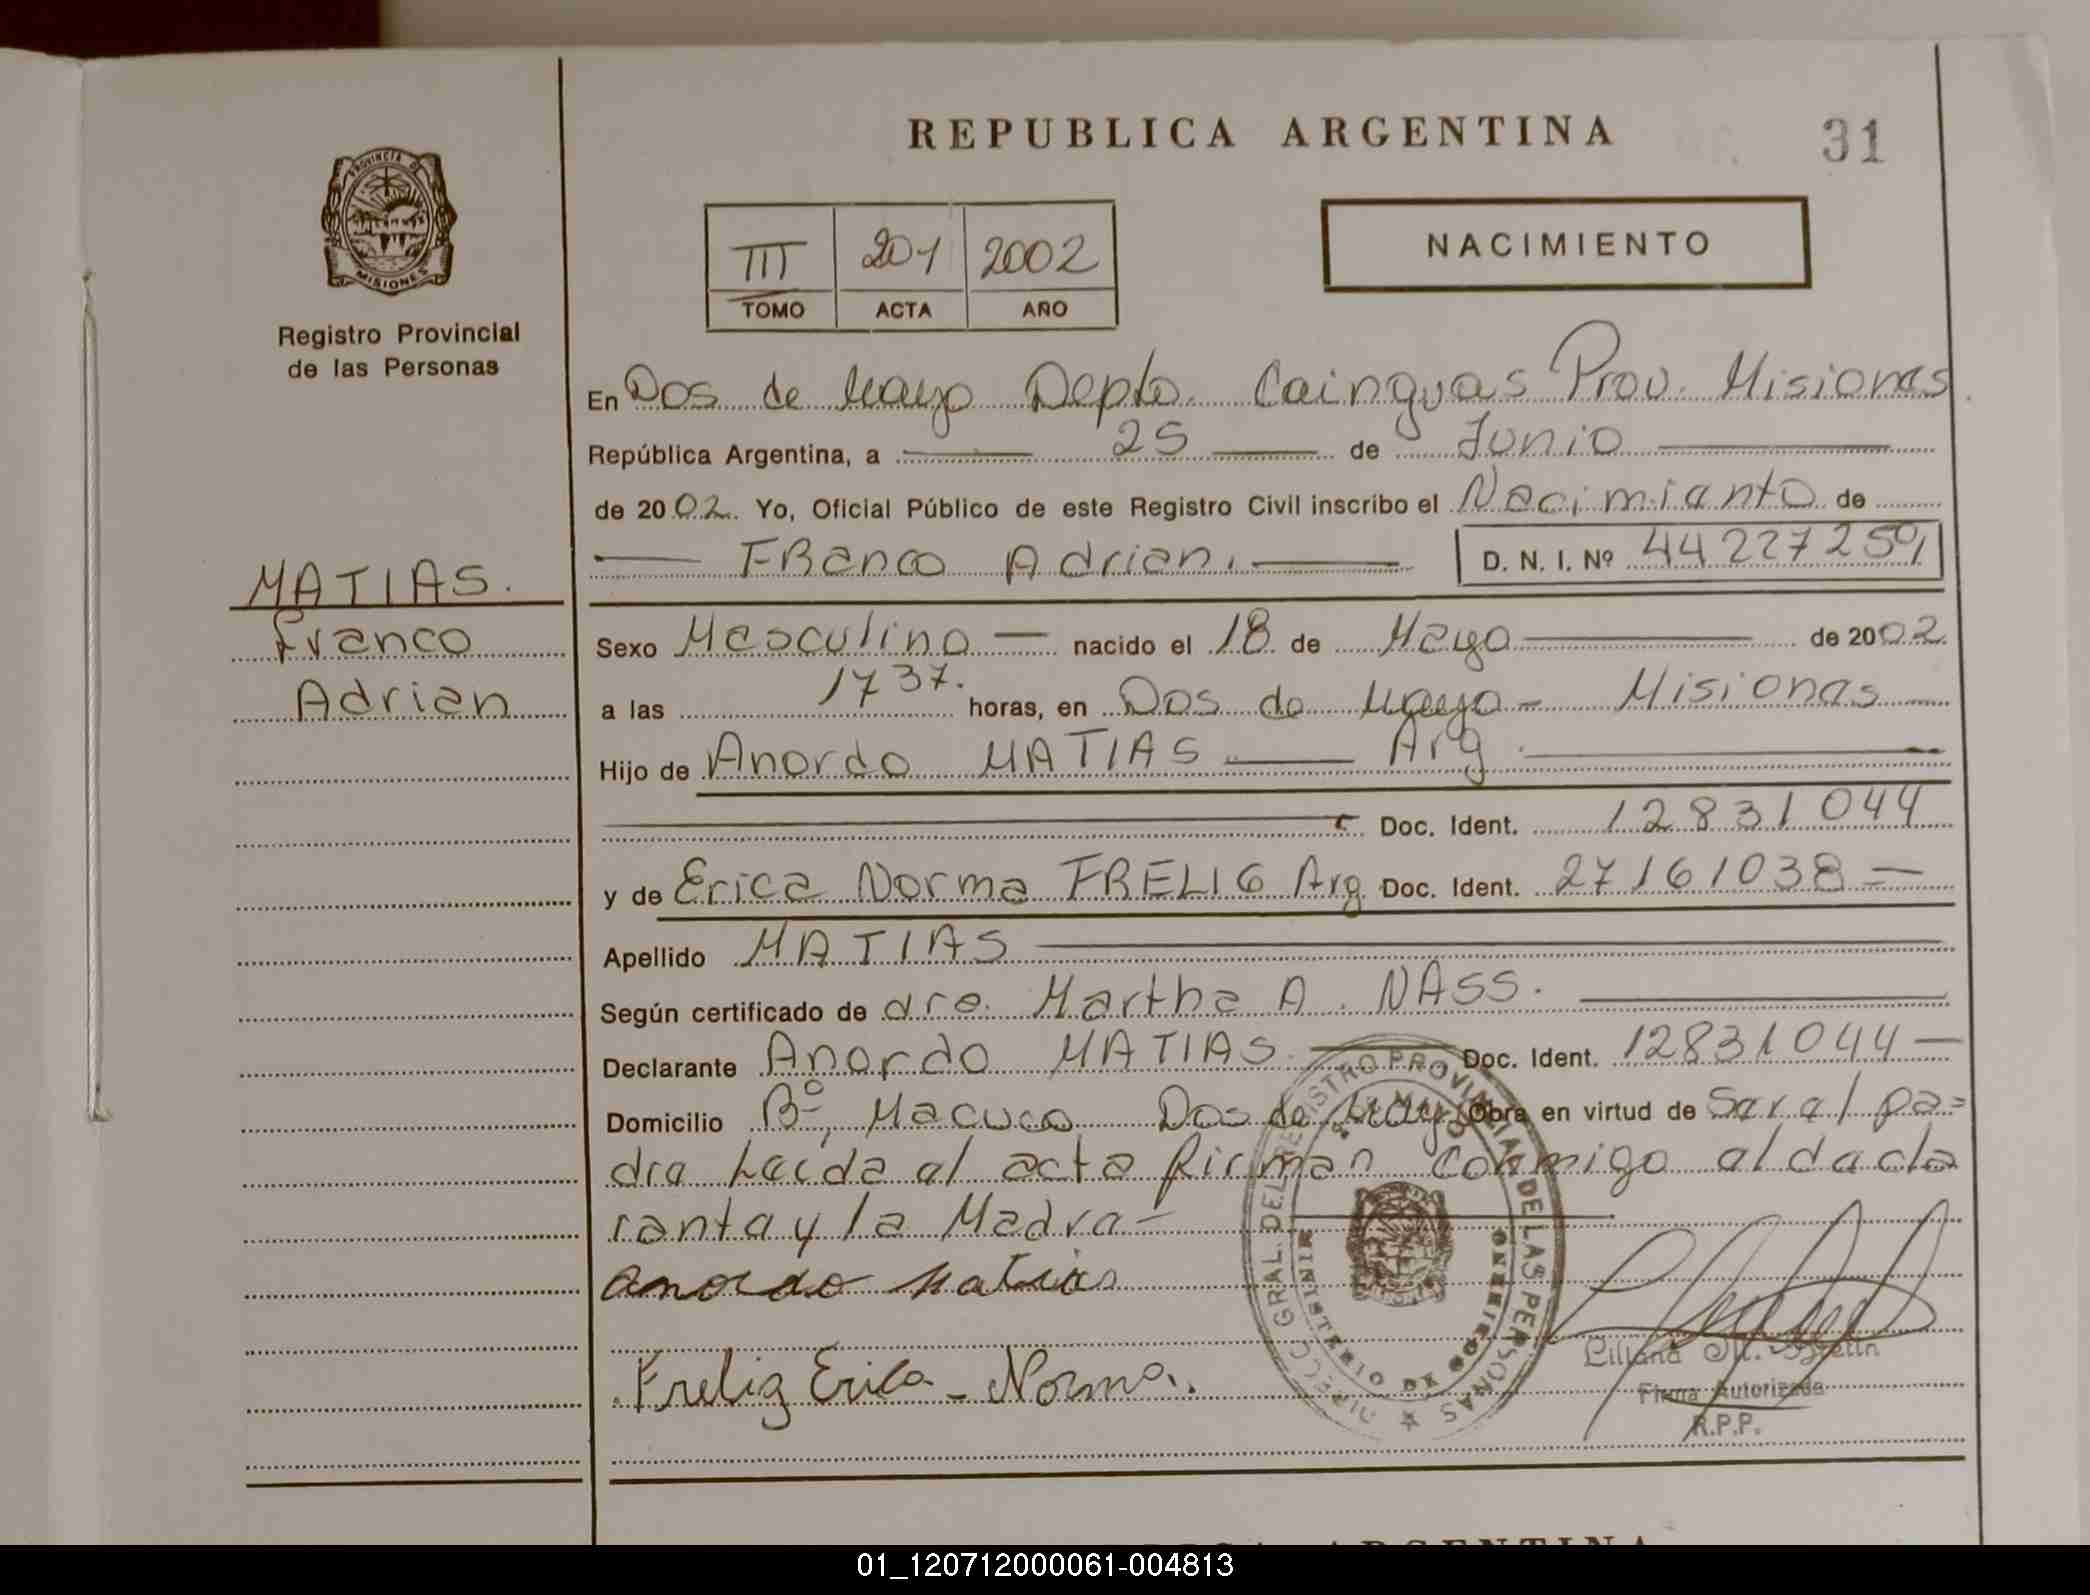 REPUBLICA ARGENTINA
31
PROVINCIA DE
MISIONES
Registro Provincial
de las Personas
III 201 2002
TOMO ACTA AÑO
NACIMIENTO
En Dos de Mayo Depto. Cainguas Prov. Misiones
República Argentina, a 25 de Junio
de 2002. Yo, Oficial Público de este Registro Civil inscribo el Nacimianto de
FRanco Adrian. D. N. I. Nº 44227259
MATIAS.
Franco
Adrian
Sexo Masculino nacido el 18 de Mayo de 2002.
a las 1737. horas, en Dos de Mayo - Misiones
Hijo de Anordo MATIAS Arg
Doc. Ident. 12831044
y de Erica Norma FRELIG Arg Doc. Ident. 27161038 —
Apellido MATIAS
Según certificado de dra. Martha A. NASS.
Declarante Anordo MATIAS Doc. Ident. 12831044 —
Domicilio Bº, Macuco Dos de Mayo Obra en virtud de Sar al pa=
dra Laída al acta firman conmigo al dacla
ranta y la Madra —
Anordo Matias
Frelig Erica - Norma.
DIRECC GRAL DEL REGISTRO PROVINCIAL DE LAS PERSONAS
MINISTERIO DE GOBIERNO
Liliana M.
Firma Autorizada
R.P.P.
REPUBLICA ARGENTINA
01_120712000061-004813